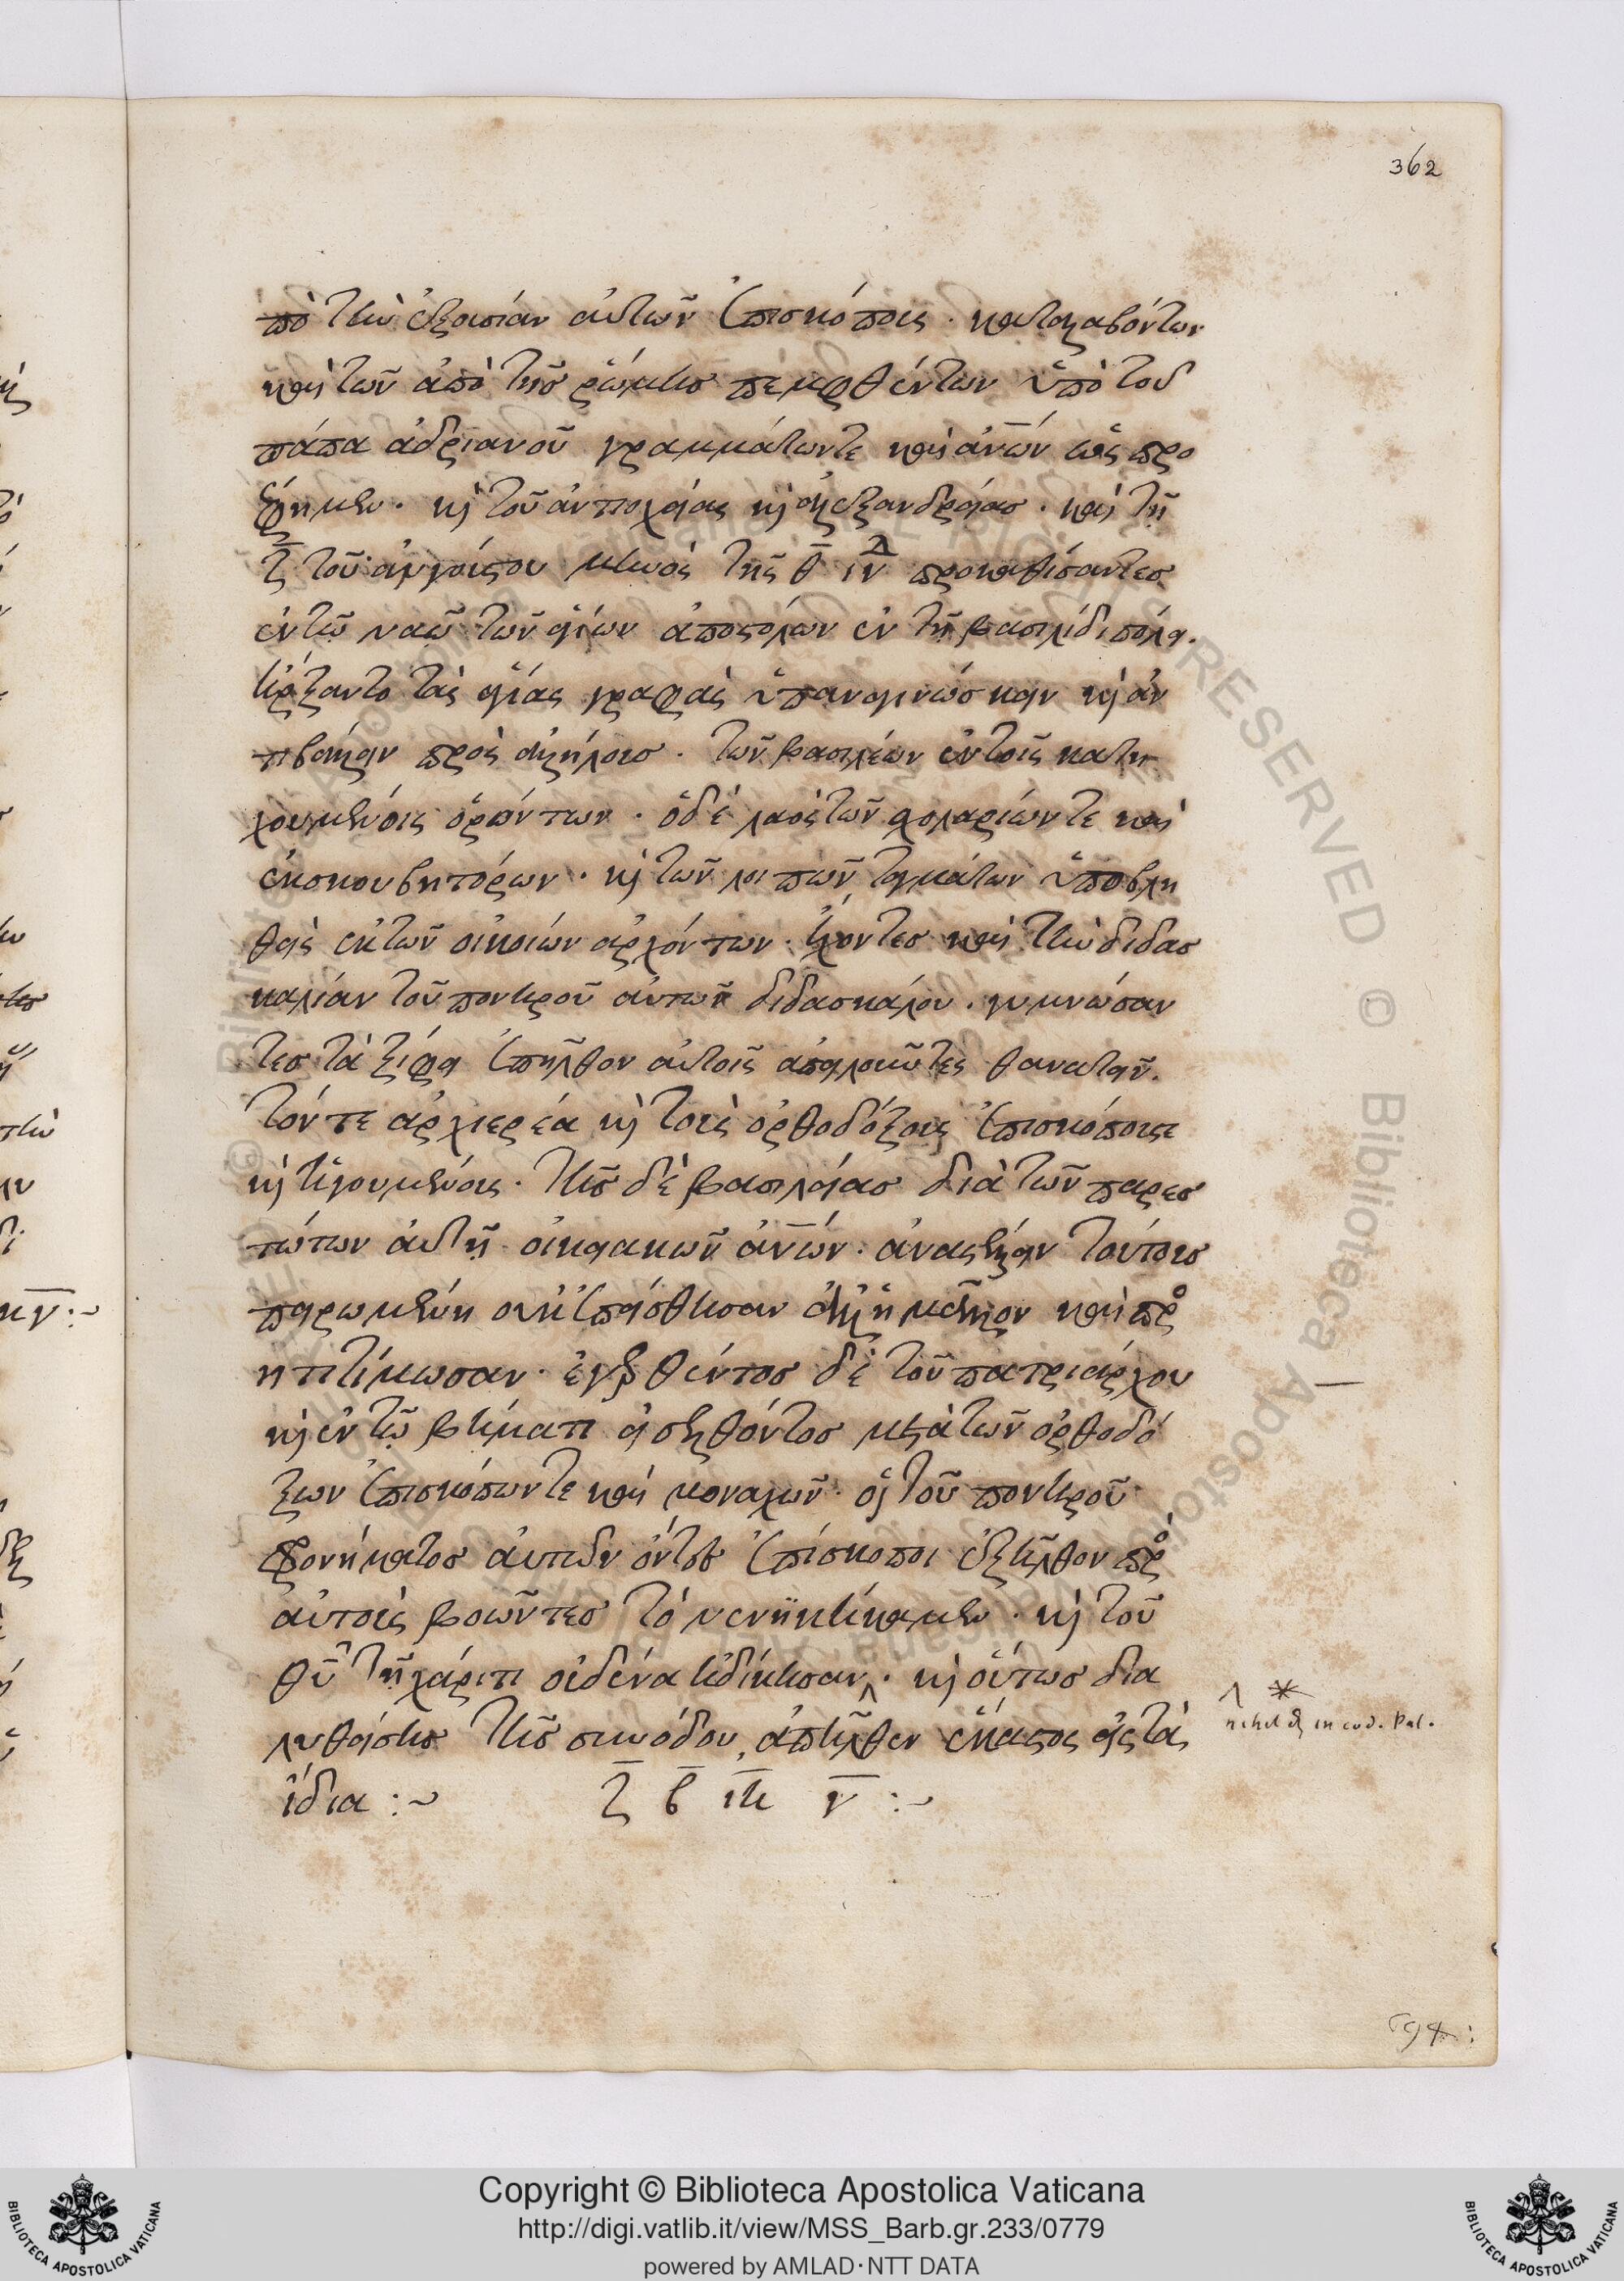 362
πὸ τὴν ἐξουσίαν αὐτῶν ἐπισκόπους · καταλαβόντων
καὶ τῶν ἀπὸ τῆς ῥώμης πεμφθέντων ὑπὸ τοῦ
πάπα ἀδριανοῦ γραμμάτων τε καὶ ἀν̅ων ὡς προ
έφημεν · κὶ τοῦ ἀντιοχείας κὶ ἀλεξανδρείας · καὶ τῇ
ζ̅ τοῦ αὐγούστου μηνὸς τῆς θ̅ ἰν̅δ προκαθίσαντες
ἐν τῷ ναῷ τῶν ἁγίων ἀποστόλων ἐν τῇ βασιλίδι πόλει.
ἤρξαντο τὰς ἁγίας γραφὰς ὑπαναγινώσκειν κὶ ἀν
τιβάλλειν πρὸς ἀλλήλους · τῶν βασιλέων ἐν τοῖς κατη
χουμένοις ὁρώντων · ὁ δὲ λαὸς τῶν σχολαρίων τε καὶ
ἐκσκουβητόρων · κὶ τῶν λοιπῶν ταγμάτων ὑποβλη
θεὶς ἐκ τῶν οἰκείων ἀρχόντων · ἔχοντες καὶ τὴν διδασ
καλίαν τοῦ πονηροῦ αὐτῶν διδασκάλου · γυμνώσαν
τες τὰ ξίφη ἐπῆλθον αὐτοῖς ἀπειλοῦντες θανατεῖν.
τόν τε ἀρχιερέα κὶ τοὺς ὀρθοδόξους ἐπισκόπους
κὶ ἡγουμένους · τῆς δὲ βασιλείας διὰ τῶν παρεσ
τώτων αὐτῇ οἰκειακῶν ἀν̅ων · ἀναστέλλειν τούτοις
πειρωμένη οὐκ ἐπείσθησαν ἀλλὰ μᾶλλον καὶ πρὸ
ητιτίμωσαν · ἐγερθέντος δὲ τοῦ πατριάρχου
κὶ ἐν τῷ βήματι εἰσελθόντος μετὰ τῶν ὀρθοδό
ξων ἐπισκόπων τε καὶ μοναχῶν · οἱ τοῦ πονηροῦ
φρονήματος αὐτῶν ὄντες ἐπίσκοποι ἐξῆλθον πρὸς
αὐτοὺς βοῶντες τὸ νενικήκαμεν · κὶ τοῦ
θῦ τῇ χάριτι οὐδένα ἠδίκησαν ʌ · κὶ οὕτως δια
λυθείσης τῆς συνόδου, ἀπῆλθεν ἕκαστος εἰς τὰ
ἴδια :~ ζ̅ β̅ ιη̅ γ̅ :~
ʌ *
nihil dē in cod. Pal.
Copyright © Biblioteca Apostolica Vaticana
http://digi.vatlib.it/view/MSS_Barb.gr.233/0779
powered by AMLAD·NTT DATA